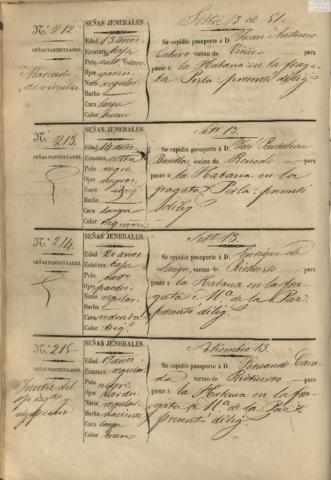 N.º 212.
SEÑAS PARTICULARES.
Marcado
de viruelas
SEÑAS JENERALES.
Edad 13 años
Estatura baja
Pelo cast.º claro
Ojos pardos
Nariz regular
Barba
Cara larga
Color bueno
Setbre 13 de 51.
Se espidió pasaporte á D. Juan Antonio
vecino de para
pasar á la Habana en la fraga-
ta Perla: presentó dilig.
N.º 213.
SEÑAS PARTICULARES.
SEÑAS JENERALES.
Edad 14 años
Estatura corta
Pelo negro
Ojos negros
Nariz reg.
Barba
Cara larga
Color trigueño
Set.e 13.
Se espidió pasaporte á D. José
vecino de para
pasar á la Habana en la
fragata Perla: presentó
dilig.
N.º 214.
SEÑAS PARTICULARES.
SEÑAS JENERALES.
Edad 20 años
Estatura baja
Pelo negro
Ojos pardos
Nariz regular
Barba
Cara redonda
Color trig.º
Set.e 13.
Se espidió pasaporte á D. Enrique de
vecino de para
pasar á la Habana en la fra-
gata M.ª de la Paz:
presentó dilig.
N.º 215.
SEÑAS PARTICULARES.
SEÑAS JENERALES.
Edad años
Estatura regular
Pelo negro
Ojos pardos
Nariz regular
Barba naciente
Cara larga
Color bueno
Setiembre 13.
Se espidió pasaporte á D. Fernando
vecino de para
pasar á la Habana en la fra-
gata M.ª de la Paz:
presentó dilig.